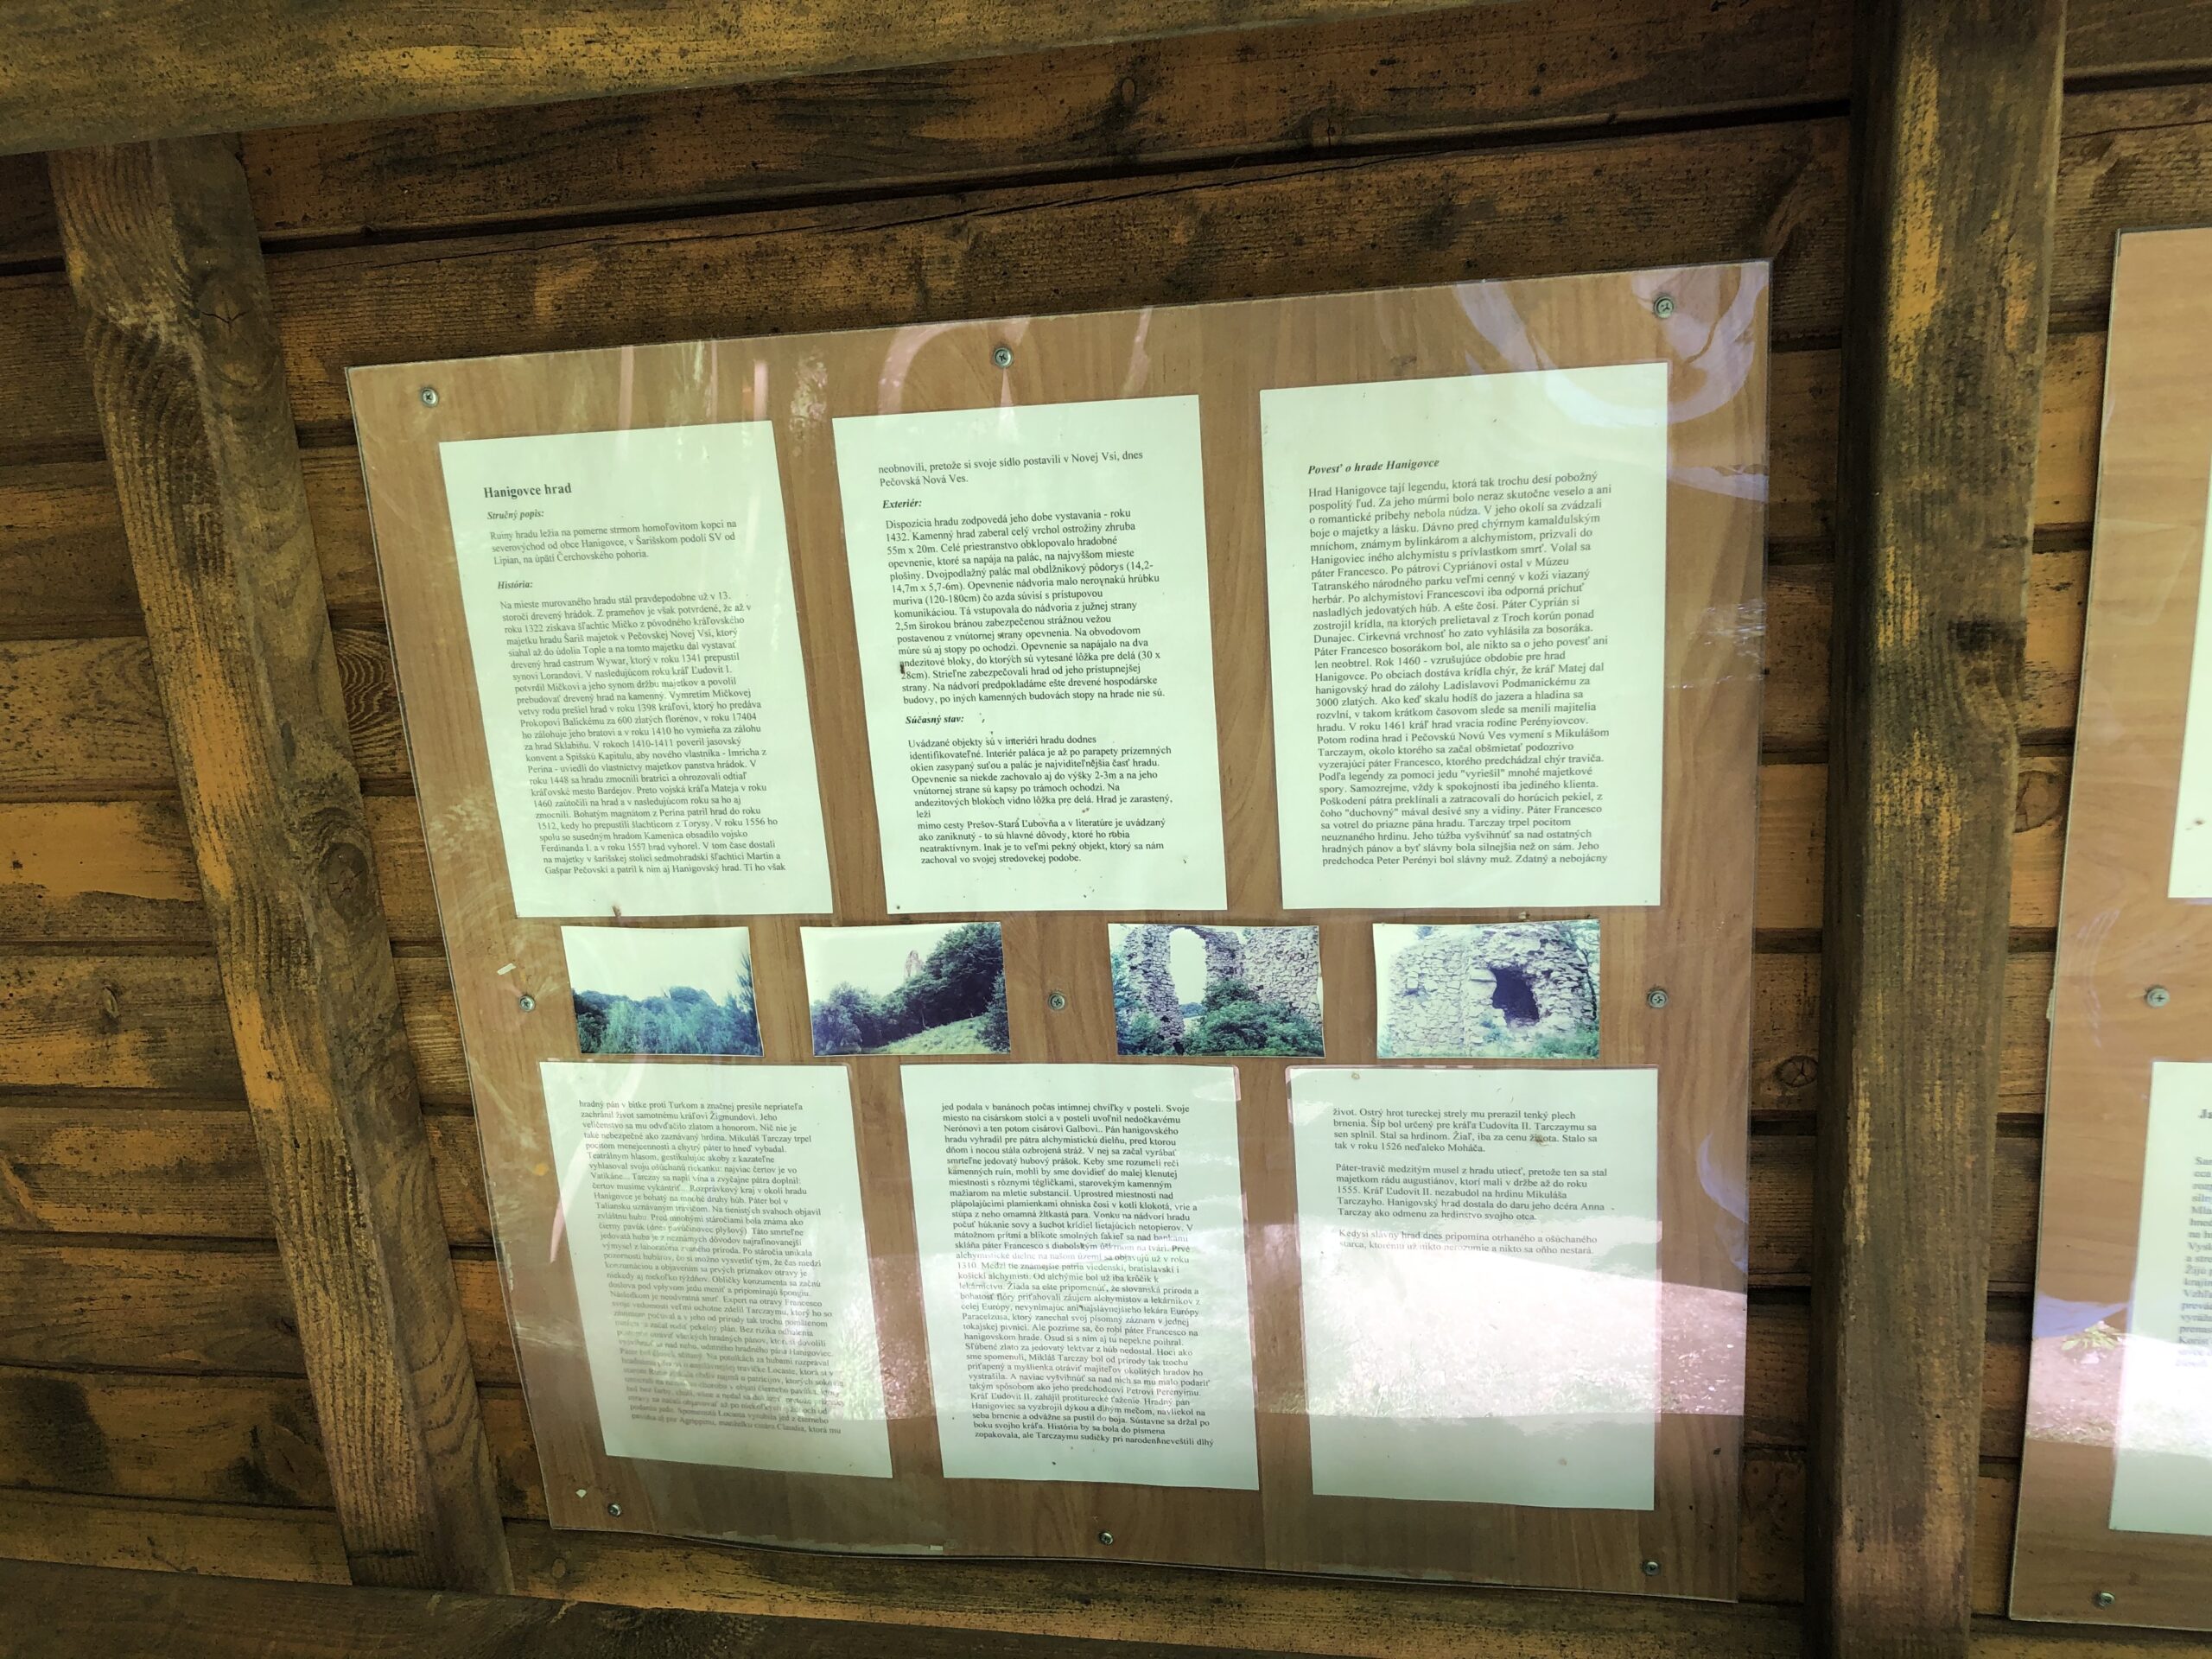 Hanigovce hrad
Stručný popis:
Ruiny hradu ležia na pomerne strmom homoľovitom kopci na
severovýchod od obce Hanigovce, v Šarišskom podolí SV od
Lipian, na úpätí Čerchovského pohoria.
História:
Na mieste murovaného hradu stál pravdepodobne už v 13.
storočí drevený hrádok. Z prameňov je však potvrdené, že až v
roku 1322 získava šľachtic Mičko z pôvodného kráľovského
majetku hradu Šariš majetok v Pečovskej Novej Vsi, ktorý
siahal až do údolia Tople a na tomto majetku dal vystavať
drevený hrad castrum Wywar, ktorý v roku 1341 prepustil
synovi Lorandovi. V nasledujúcom roku kráľ Ľudovít I.
potvrdil Mičkovi a jeho synom držbu majetkov a povolil
prebudovať drevený hrad na kamenný. Vymretím Mičkovej
vetvy rodu prešiel hrad v roku 1398 kráľovi, ktorý ho predáva
Prokopovi Balickému za 600 zlatých florénov, v roku 17404
ho zálohuje jeho bratovi a v roku 1410 ho vymieňa za zálohu
za hrad Sklabiňu. V rokoch 1410-1411 poveril jasovský
konvent a Spišskú Kapitulu, aby nového vlastníka - Imricha z
Perína - uviedli do vlastníctvy majetkov panstva hrádok. V
roku 1448 sa hradu zmocnili bratríci a ohrozovali odtiaľ
kráľovské mesto Bardejov. Preto vojská kráľa Mateja v roku
1460 zaútočili na hrad a v nasledujúcom roku sa ho aj
zmocnili. Bohatým magnátom z Perína patril hrad do roku
1512, kedy ho prepustili šľachticom z Torysy. V roku 1556 ho
spolu so susedným hradom Kamenica obsadilo vojsko
Ferdinanda I. a v roku 1557 hrad vyhorel. V tom čase dostali
na majetky v šarišskej stolici sedmohradskí šľachtici Martin a
Gašpar Pečovskí a patril k nim aj Hanigovský hrad. Tí ho však
neobnovili, pretože si svoje sídlo postavili v Novej Vsi, dnes
Pečovská Nová Ves.
Exteriér:
Dispozícia hradu zodpovedá jeho dobe vystavania - roku
1432. Kamenný hrad zaberal celý vrchol ostrožiny zhruba
55m x 20m. Celé priestranstvo obklopovalo hradobné
opevnenie, ktoré sa napája na palác, na najvyššom mieste
plošiny. Dvojpodlažný palác mal obdĺžnikový pôdorys (14,2-
14,7m x 5,7-6m). Opevnenie nádvoria malo nerovnakú hrúbku
muriva (120-180cm) čo azda súvisí s prístupovou
komunikáciou. Tá vstupovala do nádvoria z južnej strany
2,5m širokou bránou zabezpečenou strážnou vežou
postavenou z vnútornej strany opevnenia. Na obvodovom
múre sú aj stopy po ochodzi. Opevnenie sa napájalo na dva
andezitové bloky, do ktorých sú vytesané lôžka pre delá (30 x
28cm). Strieľne zabezpečovali hrad od jeho prístupnejšej
strany. Na nádvorí predpokladáme ešte drevené hospodárske
budovy, po iných kamenných budovách stopy na hrade nie sú.
Súčasný stav:
Uvádzané objekty sú v interiéri hradu dodnes
identifikovateľné. Interiér paláca je až po parapety prízemných
okien zasypaný suťou a palác je najviditeľnějšia časť hradu.
Opevnenie sa niekde zachovalo aj do výšky 2-3m a na jeho
vnútornej strane sú kapsy po trámoch ochodzi. Na
andezitových blokoch vidno lôžka pre delá. Hrad je zarastený,
leží
mimo cesty Prešov-Stará Ľubovňa a v literatúre je uvádzaný
ako zaniknutý - to sú hlavné dôvody, ktoré ho robia
neatraktívnym. Inak je to veľmi pekný objekt, ktorý sa nám
zachoval vo svojej stredovekej podobe.
Povesť o hrade Hanigovce
Hrad Hanigovce tají legendu, ktorá tak trochu desí pobožný
pospolitý ľud. Za jeho múrmi bolo neraz skutočne veselo a ani
o romantické príbehy nebola núdza. V jeho okolí sa zvádzali
boje o majetky a lásku. Dávno pred chýrnym kamaldulským
mníchom, známym bylinkárom a alchymistom, prizvali do
Hanigoviec iného alchymistu s prívlastkom smrť. Volal sa
páter Francesco. Po pátrovi Cypriánovi ostal v Múzeu
Tatranského národného parku veľmi cenný v koži viazaný
herbár. Po alchymistovi Francescovi iba odporná príchuť
nasladlých jedovatých húb. A ešte čosi. Páter Cyprián si
zostrojil krídla, na ktorých prelietaval z Troch korún ponad
Dunajec. Cirkevná vrchnosť ho zato vyhlásila za bosoráka.
Páter Francesco bosorákom bol, ale nikto sa o jeho povesť ani
len neobtrel. Rok 1460 - vzrušujúce obdobie pre hrad
Hanigovce. Po obciach dostáva krídla chýr, že kráľ Matej dal
hanigovský hrad do zálohy Ladislavovi Podmanickému za
3000 zlatých. Ako keď skalu hodíš do jazera a hladina sa
rozvlní, v takom krátkom časovom slede sa menili majitelia
hradu. V roku 1461 kráľ hrad vracia rodine Perényiovcov.
Potom rodina hrad i Pečovskú Novú Ves vymení s Mikulášom
Tarczaym, okolo ktorého sa začal obšmietať podozrivo
vyzerajúci páter Francesco, ktorého predchádzal chýr traviča.
Podľa legendy za pomoci jedu "vyriešil" mnohé majetkové
spory. Samozrejme, vždy k spokojnosti iba jediného klienta.
Poškodení pátra preklínali a zatracovali do horúcich pekiel, z
čoho "duchovný" mával desivé sny a vidiny. Páter Francesco
sa votrel do priazne pána hradu. Tarczay trpel pocitom
neuznaného hrdinu. Jeho túžba vyšvihnúť sa nad ostatných
hradných pánov a byť slávny bola silnejšia než on sám. Jeho
predchodca Peter Perényi bol slávny muž. Zdatný a nebojácny
hradný pán v bitke proti Turkom a značnej presile nepriateľa
zachránil život samotnému kráľovi Žigmundovi. Jeho
veličenstvo sa mu odvďačilo zlatom a honorom. Nič nie je
také nebezpečné ako zaznávaný hrdina. Mikuláš Tarczay trpel
pocitom menejcennosti a chytrý páter to hneď vybadal.
Teatrálnym hlasom, gestikulujúc akoby z kazateľne
vyhlasoval svoju ošúchanú riekanku: najviac čertov je vo
Vatikáne... Tarczay sa napil vína a zvyčajne pátra doplnil:
čertov musíme vykántriť... Rozprávkový kraj v okolí hradu
Hanigovce je bohatý na mnohé druhy húb. Páter bol v
Taliansku uznávaným travičom. Na tienistých svahoch objavil
zvláštnu hubu. Pred mnohými stáročiami bola známa ako
čierny pavúk (dnes pavučinovec plyšový). Táto smrteľne
jedovatá huba je z neznámych dôvodov najrafinovanejší
výmysel z laboratória zvaného príroda. Po stáročia unikala
pozornosti hubárov, čo si možno vysvetliť tým, že čas medzi
konzumáciou a objavením sa prvých príznakov otravy je
niekedy aj niekoľko týždňov. Obličky konzumenta sa začnú
doslova pod vplyvom jedu meniť a pripomínajú špongiu.
Následkom je neodvratná smrť. Expert na otravy Francesco
svoje vedomosti veľmi ochotne zdelil Tarczaymu, ktorý ho so
jed podala v banánoch počas intímnej chvíľky v posteli. Svoje
miesto na cisárskom stolci a v posteli uvoľnil nedočkavému
Nerónovi a ten potom cisárovi Galbovi.. Pán hanigovského
hradu vyhradil pre pátra alchymistickú dielňu, pred ktorou
dňom i nocou stála ozbrojená stráž. V nej sa začal vyrábať
smrteľne jedovatý hubový prášok. Keby sme rozumeli reči
kamenných ruín, mohli by sme dovidieť do malej klenutej
miestnosti s rôznymi tégličkami, starovekým kamenným
mažiarom na mletie substancií. Uprostred miestnosti nad
plápolajúcimi plamienkami ohniska čosi v kotli klokotá, vrie a
stúpa z neho omamná žltkastá para. Vonku na nádvorí hradu
počuť húkanie sovy a šuchot krídiel lietajúcich netopierov. V
mátožnom prítmí a blikote smolných fakieľ sa nad bankami
skláňa páter Francesco s diabolským úškrnom na tvári. Prvé
alchymistické dielne na našom území sa objavujú už v roku
1310. Medzi tie známejšie patria viedenskí, bratislavskí i
košickí alchymisti. Od alchýmie bol už iba krôčik k
lekárnictvu. Žiada sa ešte pripomenúť, že slovanská príroda a
bohatosť flóry priťahovali záujem alchymistov a lekárnikov z
celej Európy, nevynímajúc ani najslávnejšieho lekára Európy
Paracelzusa, ktorý zanechal svoj písomný záznam v jednej
tokajskej pivnici. Ale pozrime sa, čo robí páter Francesco na
hanigovskom hrade. Osud si s ním aj tu nepekne poihral.
Sľúbené zlato za jedovatý lektvar z húb nedostal. Hoci ako
sme spomenuli, Mikláš Tarczay bol od prírody tak trochu
priťapený a myšlienka otráviť majiteľov okolitých hradov ho
vystrašila. A naviac vyšvihnúť sa nad nich sa mu malo podariť
takým spôsobom ako jeho predchodcovi Petrovi Perényimu.
Kráľ Ľudovít II. zahájil protiturecké ťaženie. Hradný pán
Hanigoviec sa vyzbrojil dýkou a dlhým mečom, navliekol na
seba brnenie a odvážne sa pustil do boja. Sústavne sa držal po
boku svojho kráľa. História by sa bola do písmena
zopakovala, ale Tarczaymu sudičky pri narodení neveštili dlhý
život. Ostrý hrot tureckej strely mu prerazil tenký plech
brnenia. Šíp bol určený pre kráľa Ľudovíta II. Tarczaymu sa
sen splnil. Stal sa hrdinom. Žiaľ, iba za cenu života. Stalo sa
tak v roku 1526 neďaleko Moháča.
Páter-travič medzitým musel z hradu utiecť, pretože ten sa stal
majetkom rádu augustiánov, ktorí mali v držbe až do roku
1555. Kráľ Ľudovít II. nezabudol na hrdinu Mikuláša
Tarczayho. Hanigovský hrad dostala do daru jeho dcéra Anna
Tarczay ako odmenu za hrdinstvo svojho otca.
Kedysi slávny hrad dnes pripomína otrhaného a ošúchaného
starca, ktorému už nikto nerozumie a nikto sa oňho nestará.